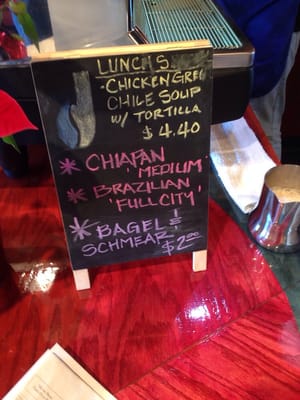 LUNCH S
-CHICKEN GREN
CHILE SOUP
W/ TORTILLA
$4.40
* CHIAPAN
'MEDIUM'
* BRAZILIAN
'FULL CITY'
* BAGEL &
SCHMEAR! $2.00